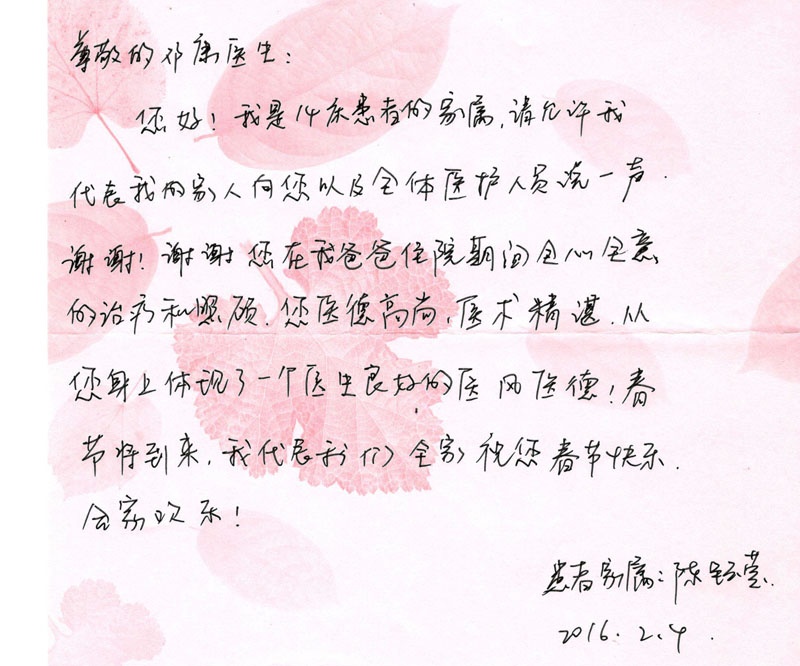 尊敬的邓康医生:
您好!我是14床患者的家属,请允许我
代表我的家人向您以及全体医护人员说一声
谢谢!谢谢您在我爸爸住院期间全心全意
的治疗和照顾.您医德高尚,医术精谌.从
您身上体现了一个医生良好的医风医德!春
节将到来,我代表我们全家祝您春节快乐.
合家欢乐!
患者家属:陈莹.
2016.2.4.